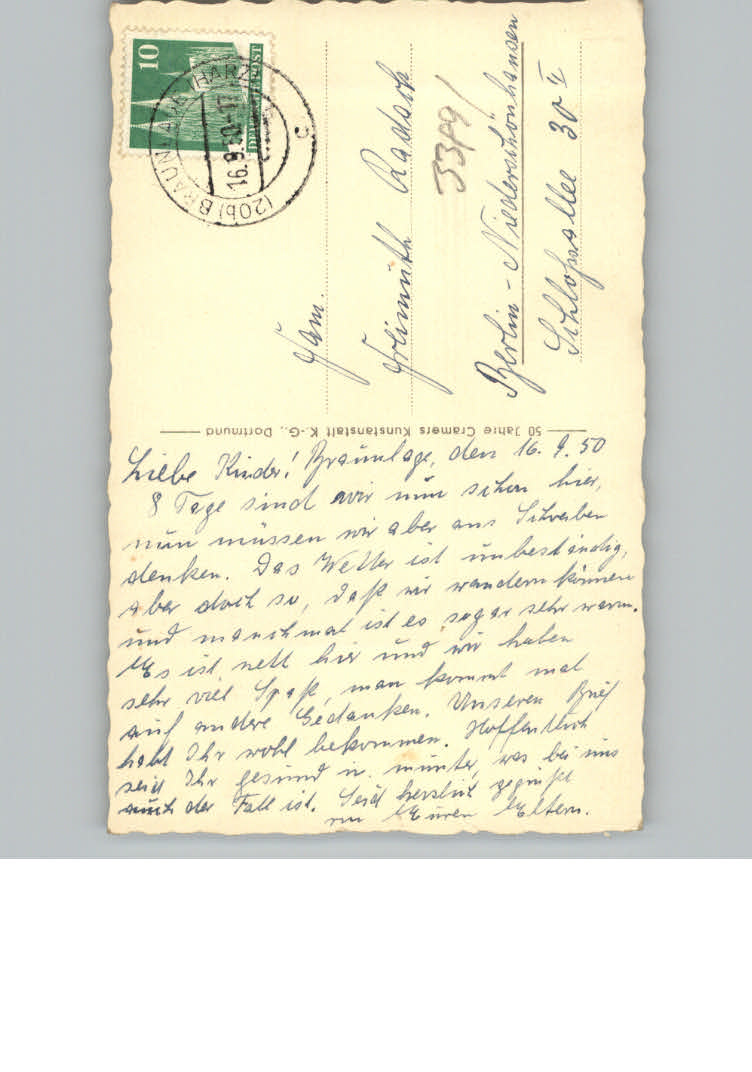 10
DEUTSCHE POST
(20b) BRAUNLAGE HARZ
16.9.50-17
c
Fam.
Freimuth Radach
Berlin - Niederschönhausen
Schloßallee 30 I
3399/
50 Jahre Cramers Kunstanstalt K.-G., Dortmund
Liebe Kinder! Braunlage, den 16. 9. 50
8 Tage sind wir nun schon hier,
nun müssen wir aber ans Schreiben
denken. Das Wetter ist unbeständig,
aber doch so, daß wir wandern können
und manchmal ist es sogar sehr warm.
Es ist nett hier und wir haben
sehr viel Spaß, man kommt mal
auf andere Gedanken. Unseren Brief
habt Ihr wohl bekommen. Hoffentlich
seid Ihr gesund u. munter, was bei uns
auch der Fall ist. Seid herzlich gegrüßt
von Euren Eltern.